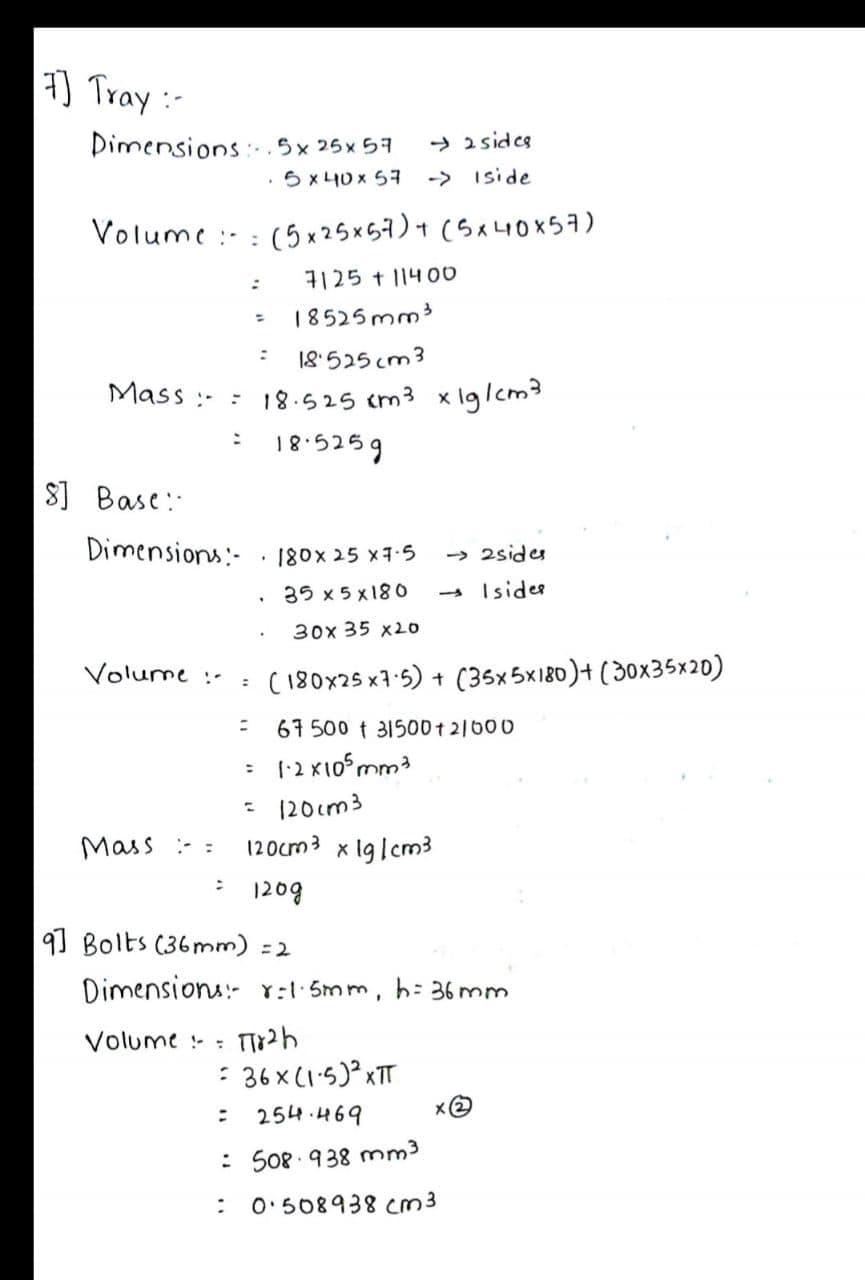 7] Tray :-
Dimensions :- . 5 x 25 x 57 → 2 sides
. 5 x 40 x 57 → 1 side
Volume :- = (5 x 25 x 57) + (5 x 40 x 57)
= 7125 + 11400
= 18525 mm³
= 18.525 cm³
Mass :- = 18.525 cm³ x 1g/cm³
= 18.525 g
8] Base :-
Dimensions :- . 180 x 25 x 7.5 → 2 sides
. 35 x 5 x 180 → 1 sides
. 30 x 35 x 20
Volume :- = (180 x 25 x 7.5) + (35 x 5 x 180) + (30 x 35 x 20)
= 67 500 + 31500 + 21000
= 1.2 x 10⁵ mm³
= 120 cm³
Mass :- = 120cm³ x 1g/cm³
= 120g
9] Bolts (36mm) = 2
Dimensions :- r = 1.5mm, h = 36 mm
Volume :- = πr²h
= 36 x (1.5)² x π
= 254.469 x ②
= 508.938 mm³
= 0.508938 cm³